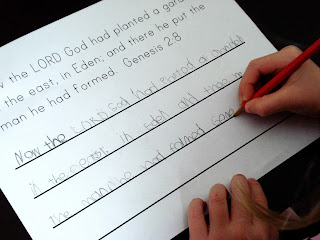 w the LORD God had planted a gard
n the east, in Eden; and there he put the
man he had formed. Genesis 2:8
Now the LORD God had planted a
in the east in Eden and there
the man he had formed Gene